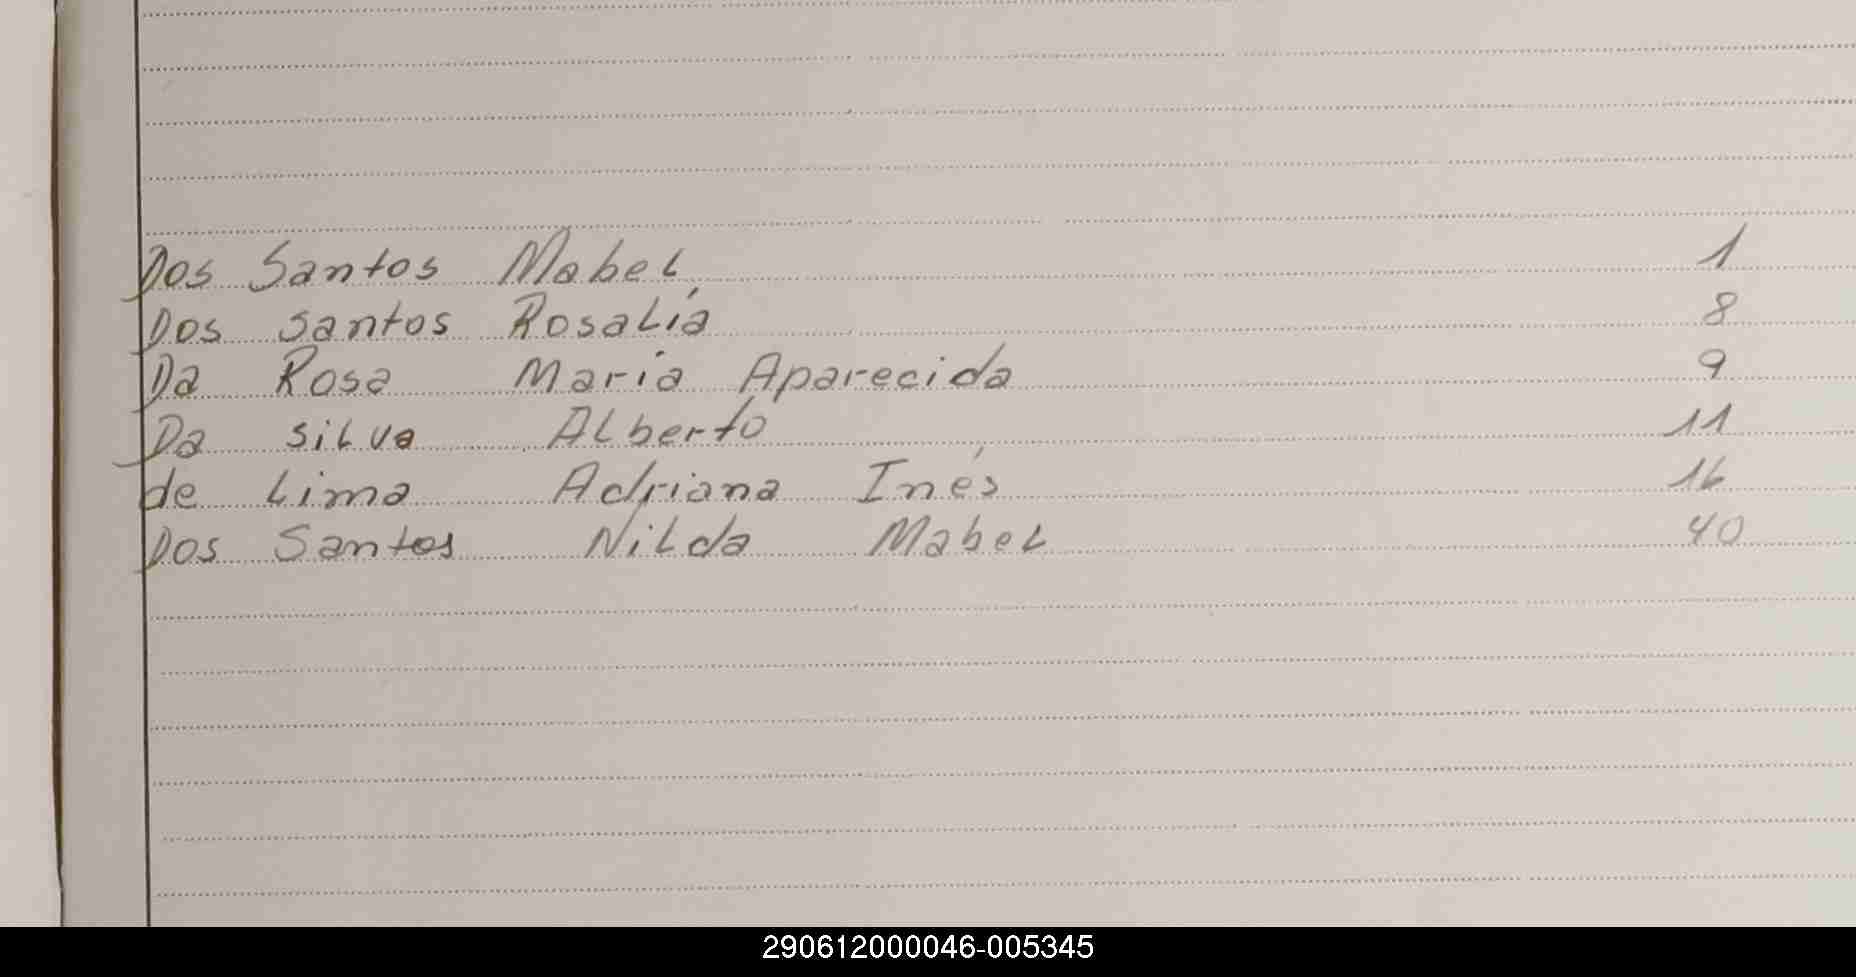 Dos Santos Mabel 1
Dos Santos Rosalía 8
Da Rosa María Aparecida 9
Da Silva Alberto 11
de Lima Adriana Inés 16
Dos Santos Nilda Mabel 40
290612000046-005345